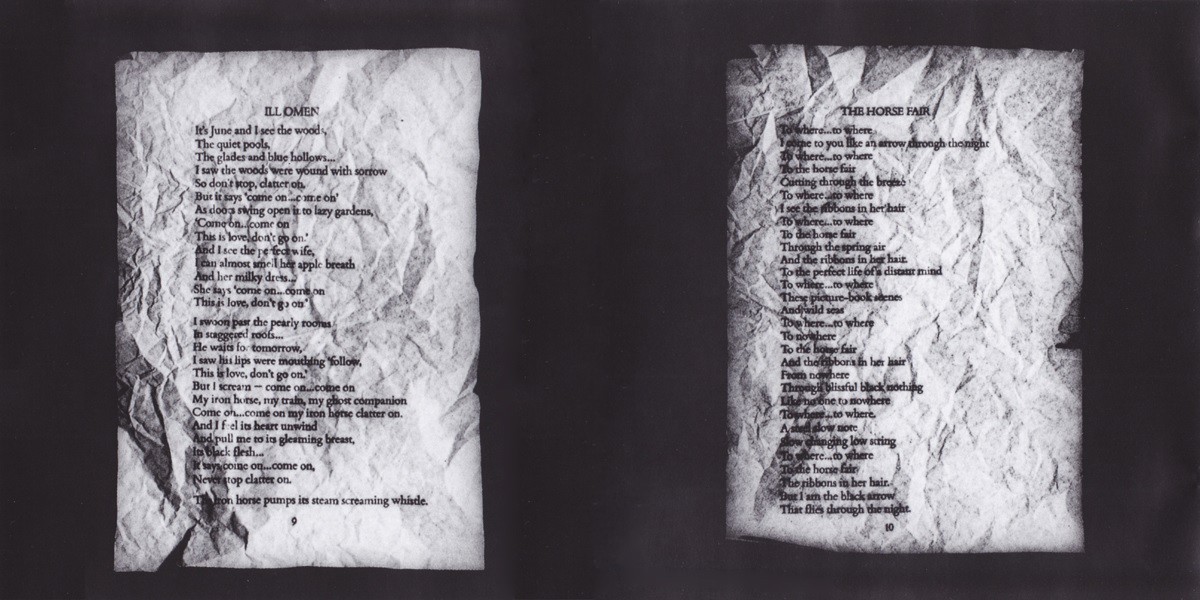 ILL OMEN
It's June and I see the woods,
The quiet pools,
The glades and blue hollows...
I saw the woods were wound with sorrow
So don't stop, clatter on,
But it says 'come on...come on'
As doors swing open it to lazy gardens,
'Come on...come on
This is love, don't go on.'
And I see the perfect wife,
I can almost smell her apple breath
And her milky dress...
She says 'come on...come on
This is love, don't go on'
I swoon past the pearly rooms
In staggered roofs...
He waits for tomorrow,
I saw his lips were mouthing 'follow,
This is love, don't go on.'
But I scream — come on...come on
My iron horse, my train, my ghost companion
Come on...come on my iron horse clatter on.
And I feel its heart unwind
And pull me to its gleaming breast,
Its black flesh...
It says come on...come on,
Never stop clatter on.
The iron horse pumps its steam screaming whistle.
9
THE HORSE FAIR
To where...to where
I come to you like an arrow through the night
To where...to where
To the horse fair
Cutting through the breeze
To where...to where
I see the ribbons in her hair
To where...to where
To the horse fair
Through the spring air
And the ribbons in her hair.
To the perfect life of a distant mind
To where...to where
These picture-book scenes
And wild seas
To where...to where
To nowhere
To the horse fair
And the ribbons in her hair
From nowhere
Through blissful black nothing
Like no one to nowhere
To where...to where.
A slow note
Slow changing low string
To where...to where
To the horse fair
The ribbons in her hair.
But I am the black arrow
That flies through the night.
10